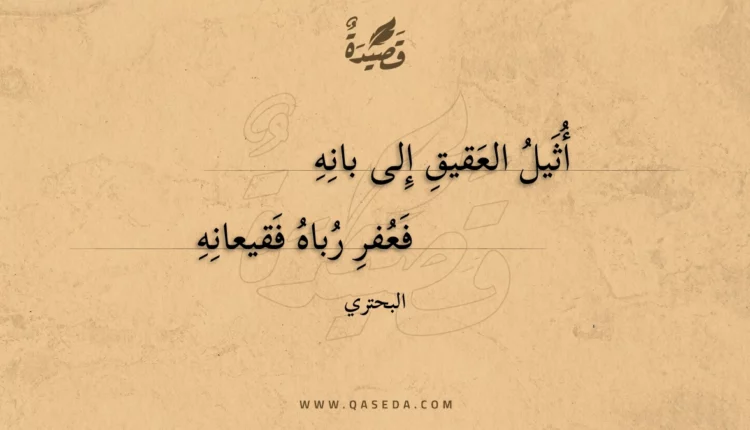 قَصِيْدَةٌ
أُثَيلُ العَقيقِ إِلى بانِهِ
فَعُفرِ رُباهُ فَقيعانِهِ
البحتري
WWW.QASEDA.COM